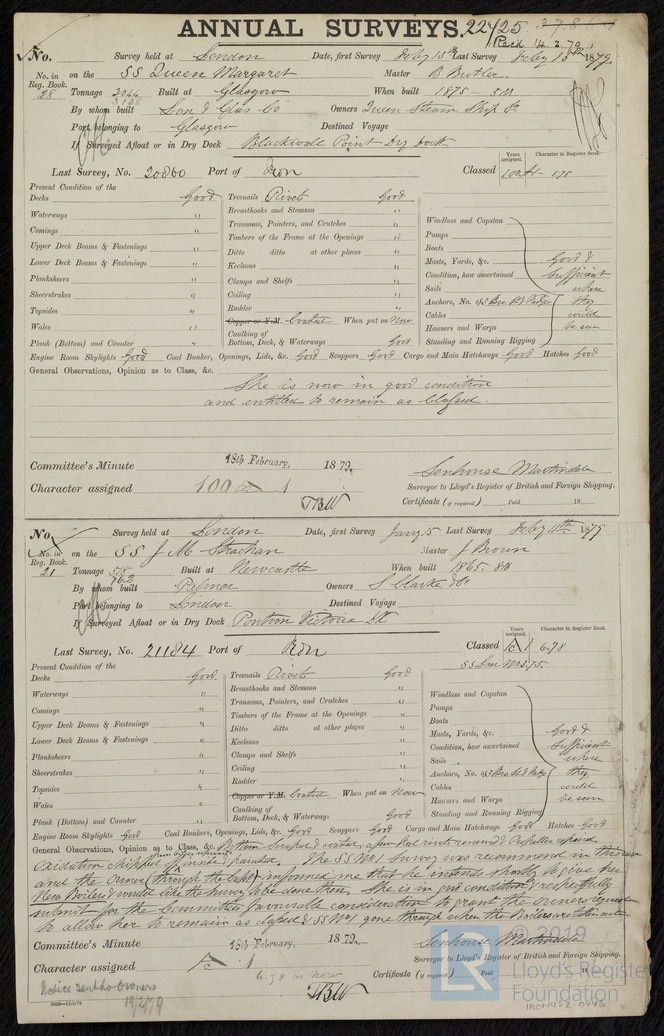 ANNUAL SURVEYS. 22425
Recd 14.2.79
No. Survey held at London Date, first Survey Feby 13th Last Survey Feby 13th 1879
No. in Reg. Book. 28 on the SS Queen Margaret Master B Butler
Tonnage 2044 Built at Glasgow When built 1875 - 5M
By whom built Lon & Glas Co Owners Queen Steam Ship Co
Port belonging to Glasgow Destined Voyage
If Surveyed Afloat or in Dry Dock Blackwall Point Dry Dock
Last Survey, No. 20860 Port of Iron Classed 100A1 - 5.78
Years assigned. Character in Register Book.
Present Condition of the
Decks Good Treenails Rivets Good
Waterways " Breasthooks and Stemson "
Comings " Transoms, Pointers, and Crutches " Windlass and Capstan
Upper Deck Beams & Fastenings " Timbers of the Frame at the Openings " Pumps
Lower Deck Beams & Fastenings " Ditto ditto at other places " Boats
Planksheers " Keelsons " Masts, Yards, &c. Good &
Sheerstrakes " Clamps and Shelfs " Condition, how ascertained sufficient
Topsides " Ceiling " Sails where
Wales " Rudder " Anchors, No. of they
Plank (Bottom) and Counter " Copper or Y.M. Coated When put on Now Cables could
Caulking of Bottom, Deck, & Waterways Good Hawsers and Warps be seen
Standing and Running Rigging
Engine Room Skylights Good Coal Bunker, Openings, Lids, &c. Good Scuppers Good Cargo and Main Hatchways Good Hatches Good
General Observations, Opinion as to Class, &c.
She is now in good condition
and entitled to remain as Classed.
Committee's Minute 18th February, 1879.
Character assigned 100 A 1
Senhouse Martindale
Surveyor to Lloyd's Register of British and Foreign Shipping.
Certificate (if required) Paid 18
No. Survey held at London Date, first Survey Jany 15 Last Survey Feby 11th 1879
No. in Reg. Book. 21 on the SS J M Strachan Master J Brown
Tonnage 578 762 Built at Newcastle When built 1865. 8M
By whom built Palmer Owners S Clarke & Co
Port belonging to London Destined Voyage
If Surveyed Afloat or in Dry Dock Victoria Dk
Last Survey, No. 21184 Port of Iron Classed A 1 6.78
Years assigned. Character in Register Book.
SS Lon No3.75.
Present Condition of the
Decks Good Treenails Rivets Good
Waterways " Breasthooks and Stemson " Windlass and Capstan
Comings " Transoms, Pointers, and Crutches " Pumps
Upper Deck Beams & Fastenings " Timbers of the Frame at the Openings " Boats
Lower Deck Beams & Fastenings " Ditto ditto at other places " Masts, Yards, &c. Good &
Planksheers " Keelsons " Condition, how ascertained sufficient
Sheerstrakes " Clamps and Shelfs " Sails where
Topsides " Ceiling " Anchors, No. of they
Wales " Rudder " Cables could
Plank (Bottom) and Counter " Copper or Y.M. Coated When put on Now Hawsers and Warps be seen
Caulking of Bottom, Deck, & Waterways Good Standing and Running Rigging
Engine Room Skylights Good Coal Bunkers, Openings, Lids, &c. Good Scuppers Good Cargo and Main Hatchways Good Hatches Good
General Observations, Opinion as to Class, &c. Bottom scraped & coated, a few rivets renewed & Propeller
Oxidation chipped & painted. The SS No1 Survey was recommend in this case
and the Owner (through the Capt) informed me that he intends shortly to give her
New Boilers & would like the survey to be done then, She is in good condition & respectfully
submit for the Committees favourable consideration to grant the Owners request
to allow her to remain as classed & SS No1 gone through when the Boilers are taken out
Committee's Minute 18th February, 1879.
Character assigned A 1
6.78 as now
Senhouse Martindale
Surveyor to Lloyd's Register of British and Foreign Shipping.
Certificate (if required) Paid 18
Notice sent to Owners
19/2/79
© 2019
LR
Lloyd's Register
Foundation
IRON482-0446